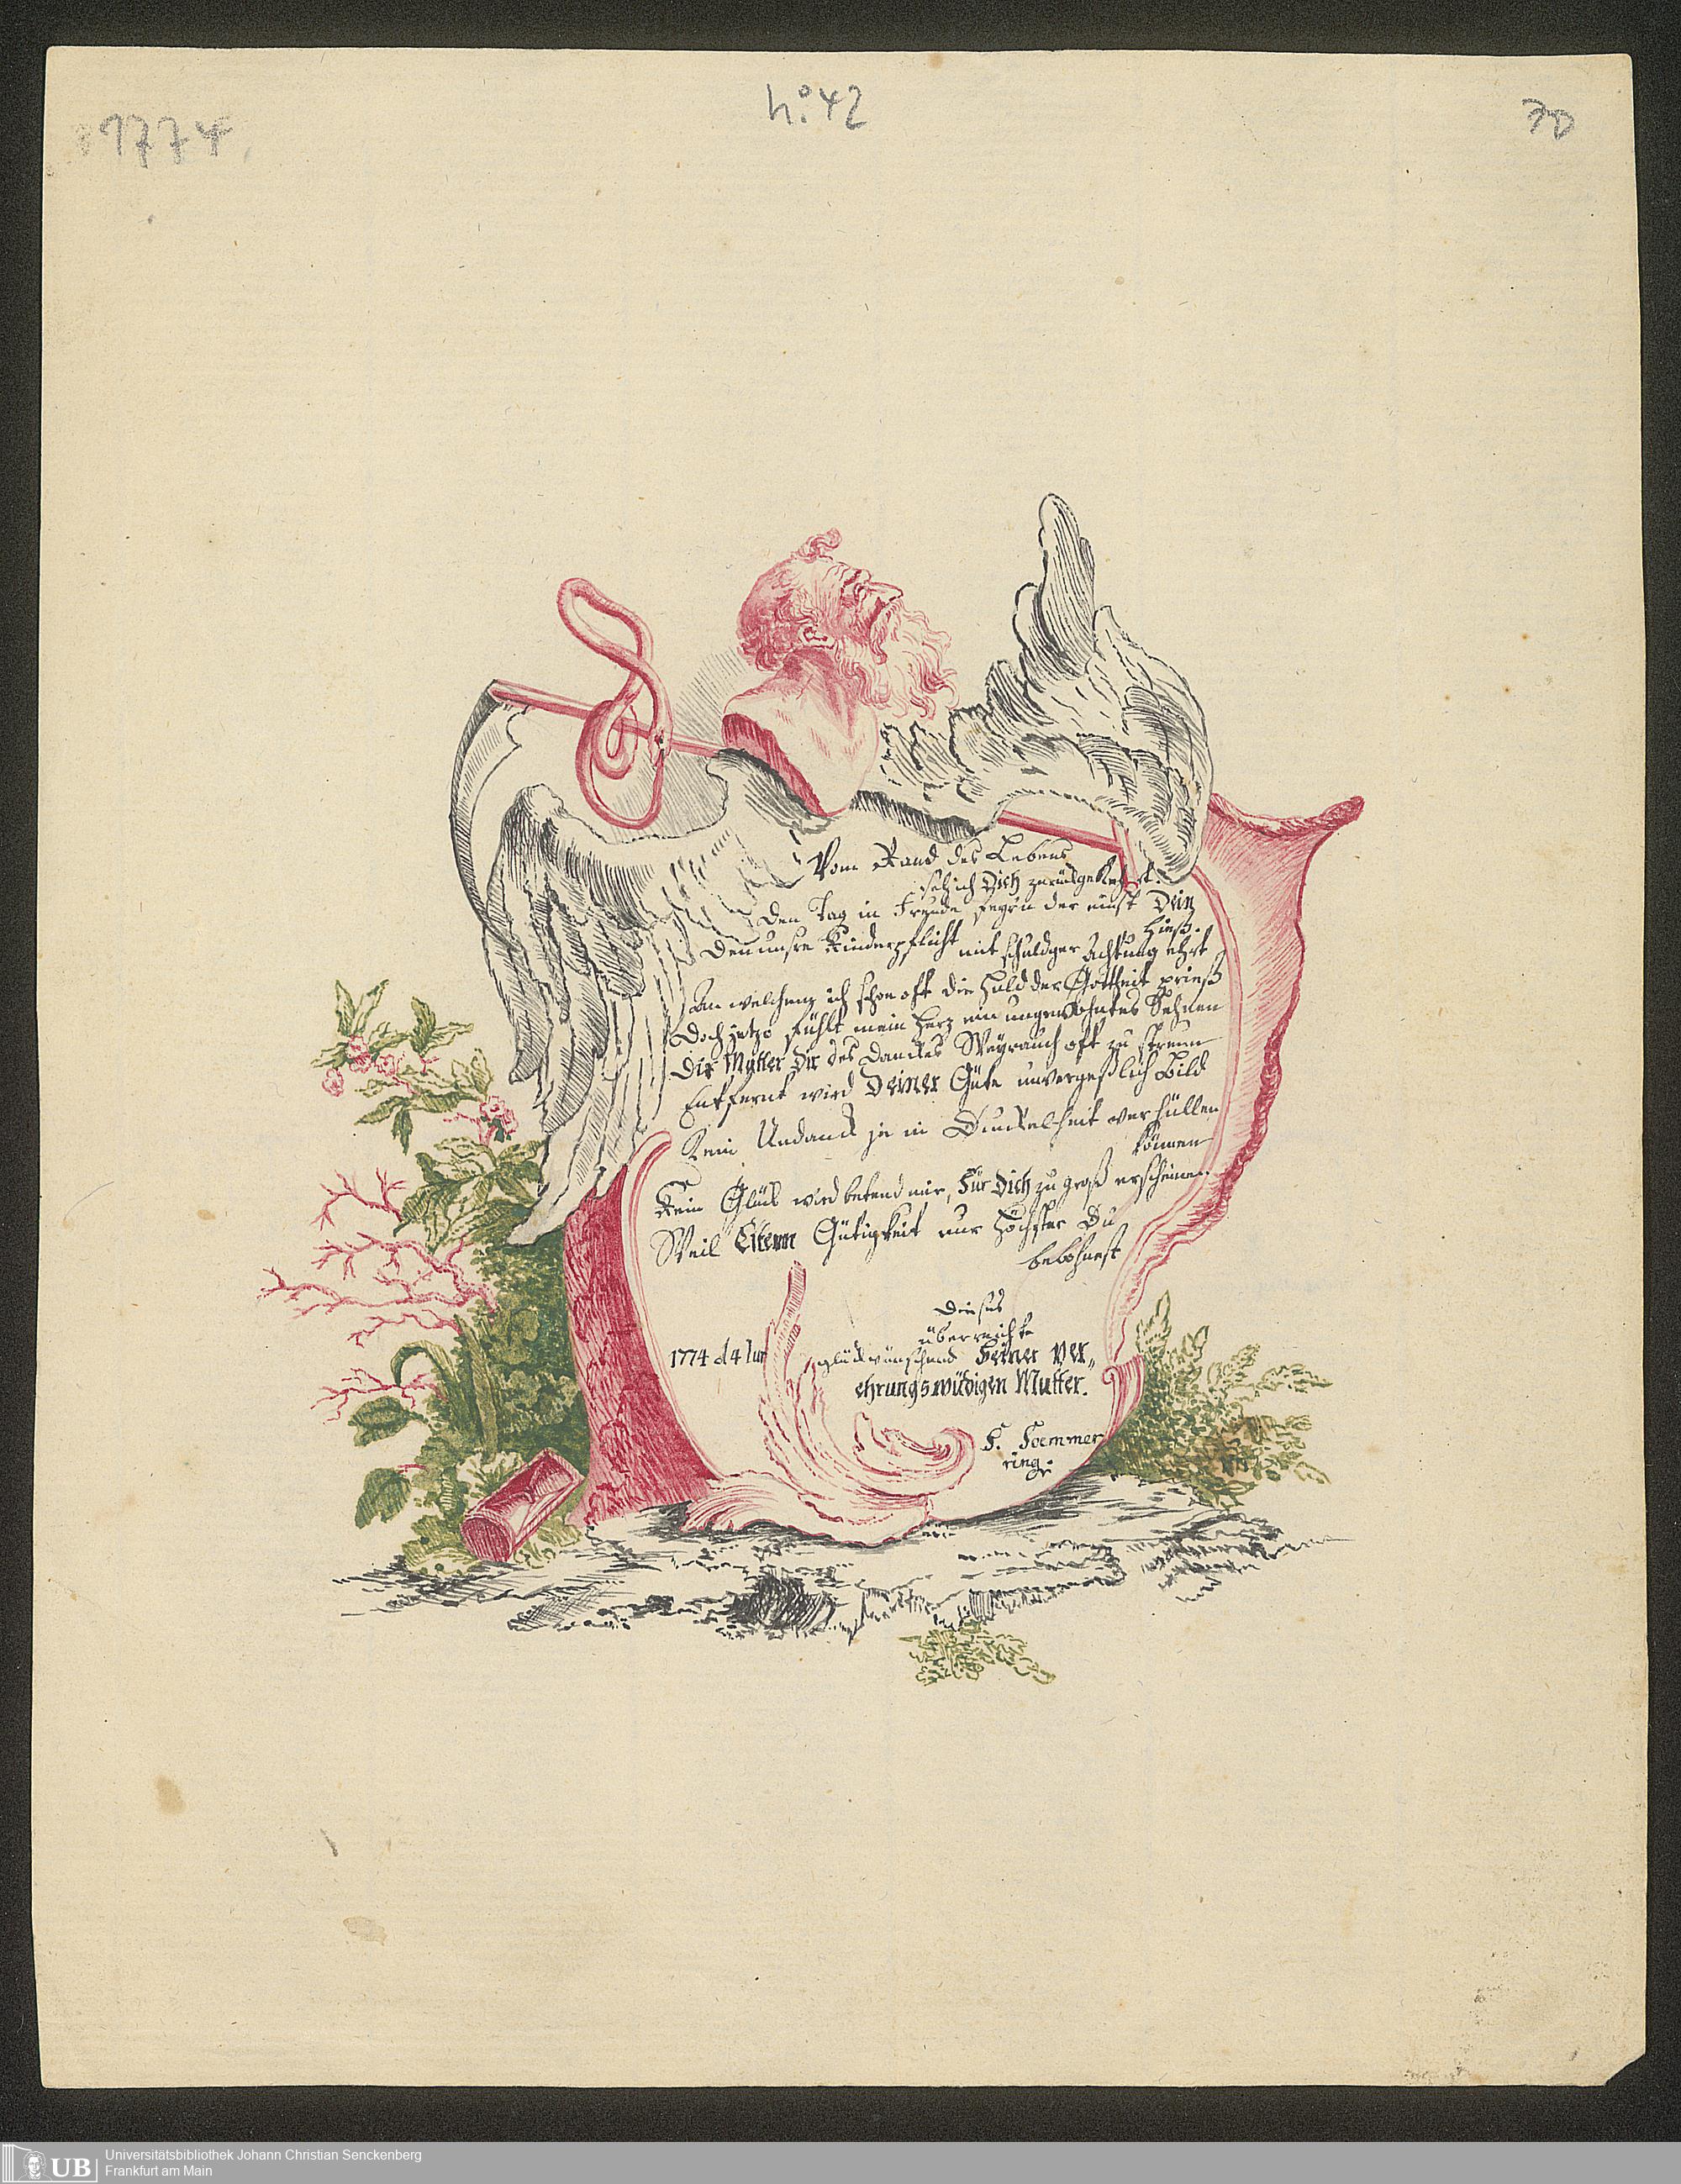 1774
No. 42
30
Vom Rand des Lebens
seh ich Dich zurückgekehrt.
Den Tag in Freude feyrn der einst Dein
hieß.
Den unsre Kinderpflicht mit schuldger Achtung ehrt
An welchem ich schon oft die Huld der Gottheit prieß
Doch jetzo fühlt mein Herz ein ungewohntes Sehnen
Dir Mutter Dir des Danckes Weyrauch oft zu streun
Entfernt wird Deiner Güte unvergeßlich Bild
Kein Undanck je in Dunckelheit verhüllen
können
Kein Glück wird betend mir, Für Dich zu groß erscheinen
Weil Eltern Gütigkeit nur Höchster Du
belohnest
Dieses
überreichte
1774 d 4 Jun glückwünschend Seiner ver„
ehrungswürdigen Mutter.
S. Soemmer
ring.
UB
Universitätsbibliothek Johann Christian Senckenberg
Frankfurt am Main